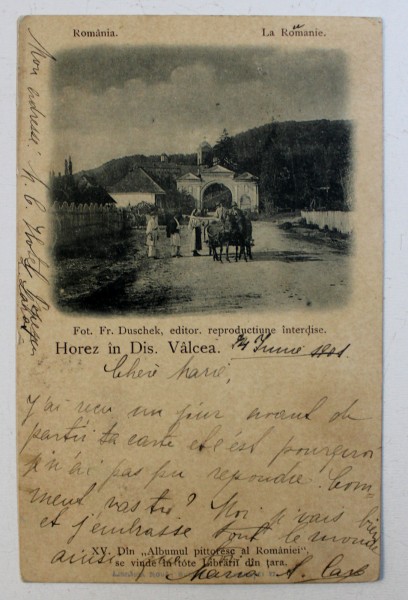 România.
La Romanie.
Mon adresse:
Fot. Fr. Duschek, editor. reproducțiune interdise.
Horez în Dis. Vâlcea.
Iunie 1901
Chère Marie,
J'ai reçu un jour avant de
partir ta carte et c'est pourquoi
je n'ai pas pu repondre. Com=
ment vas tu? Moi je vais bien
et j'embrasse tout le monde
ainsi que
XV. Din „Albumul pittoresc al României".
se vinde în tóte librării din țara.
Maria